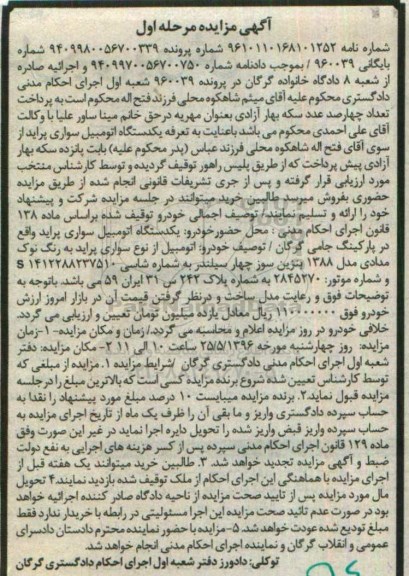 آگهی مزایده مرحله اول
شماره نامه ۹۶۱۰۱۱۰۱۶۸۱۰۱۲۵۲ شماره پرونده ۹۴۰۹۹۸۰۰۵۶۷۰۰۳۳۹ شماره
بایگانی ۹۶۰۰۳۹ / بموجب دادنامه شماره ۹۴۰۹۹۷۰۰۵۶۷۰۰۷۵۰ و اجرائیه صادره
از شعبه ۸ دادگاه خانواده گرگان در پرونده ۹۶۰۰۳۹ شعبه اول اجرای احکام مدنی
دادگستری محکوم علیه آقای میثم شاهکوه محلی فرزند فتح اله محکوم است به پرداخت
تعداد چهارصد عدد سکه بهار آزادی بعنوان مهریه در حق خانم مینا ساور علیا با وکالت
آقای علی احمدی محکوم می باشد باعنایت به تعرفه یکدستگاه اتومبیل سواری پراید از
سوی آقای فتح اله شاهکوه محلی فرزند عباس (پدر محکوم علیه) بابت پانزده سکه بهار
آزادی پیش پرداخت که از طریق پلیس راهور توقیف گردیده و توسط کارشناس منتخب
مورد ارزیابی قرار گرفته و پس از جری تشریفات قانونی انجام شده از طریق مزایده
حضوری بفروش میرسد طالبین خرید میتوانند در جلسه مزایده شرکت و پیشنهاد
خود را ارائه و تسلیم نمایند/ توصیف اجمالی خودرو توقیف شده براساس ماده ۱۳۸
قانون اجرای احکام مدنی : محل حضورخودرو: یکدستگاه اتومبیل سواری پراید واقع
در پارکینگ جامی گرگان / توصیف خودرو: اتومبیل از نوع سواری پراید به رنگ نوک
مدادی مدل ۱۳۸۸ بنزین سوز چهار سیلندر به شماره شاسی S ۱۴۱۲۲۸۸۲۳۷۵۱۰
و شماره موتور: ۲۸۴۵۲۷۰ به شماره پلاک ۲۴۲ س ۳۱ ایران ۵۹ می باشد. باتوجه به
توضیحات فوق و رعایت مدل ساخت و درنظر گرفتن قیمت آن در بازار امروز ارزش
خودرو فوق ۱۱۰۰۰۰۰۰۰ ریال معادل یازده میلیون تومان تعیین و ارزیابی می گردد.
خلافی خودرو در روز مزایده اعلام و محاسبه می گردد./ زمان و مکان مزایده- ۱-زمان
مزایده: روز چهارشنبه مورخه ۲۵/۵/۱۳۹۶ ساعت ۱۰ الی ۱۱ ۲- مکان مزایده: دفتر
شعبه اول اجرای احکام مدنی دادگستری گرگان /شرایط مزایده ۱. مزایده از مبلغی که
توسط کارشناس تعیین شده شروع برنده مزایده کسی است که بالاترین مبلغ را در جلسه
مزایده قبول نماید۲. برنده مزایده میبایست ۱۰ درصد مبلغ مورد پیشنهاد را نقدا به
حساب سپرده دادگستری واریز و ما بقی آن را ظرف یک ماه از تاریخ اجرای مزایده به
حساب سپرده واریز قبض واریز شده را تحویل دایره اجرا نماید در غیر این صورت وفق
ماده ۱۲۹ قانون اجرای احکام مدنی سپرده پس از کسر هزینه های اجرایی به نفع دولت
ضبط و آگهی مزایده تجدید خواهد شد. ۳. طالبین خرید میتوانند یک هفته قبل از
اجرای مزایده با هماهنگی این اجرای احکام از ملک توقیف شده بازدید نمایند۴ تحویل
مال مورد مزایده پس از تایید صحت مزایده از ناحیه دادگاه صادر کننده اجرائیه خواهد
بود در صورت عدم تائید صحت مزایده این اجرا مسئولیتی در رابطه با خریدار ندارد فقط
مبلغ تودیع شده عودت خواهد شد. ۵-مزایده با حضور نماینده محترم دادستان دادسرای
عمومی و انقلاب گرگان و نماینده اجرای احکام مدنی انجام خواهد شد.
توکلی: دادورز دفتر شعبه اول اجرای احکام دادگستری گرگان